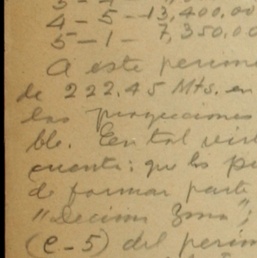 3 - 4 -
4 - 5 - 13,400.00
5 - 1 - 7,350.00
A este perime
de 222.45 Mts. en
las proyecciones
ble. En tal virt
cuenta: que los pu
de formar parte
"Decima Zona";
(e-5) del perim